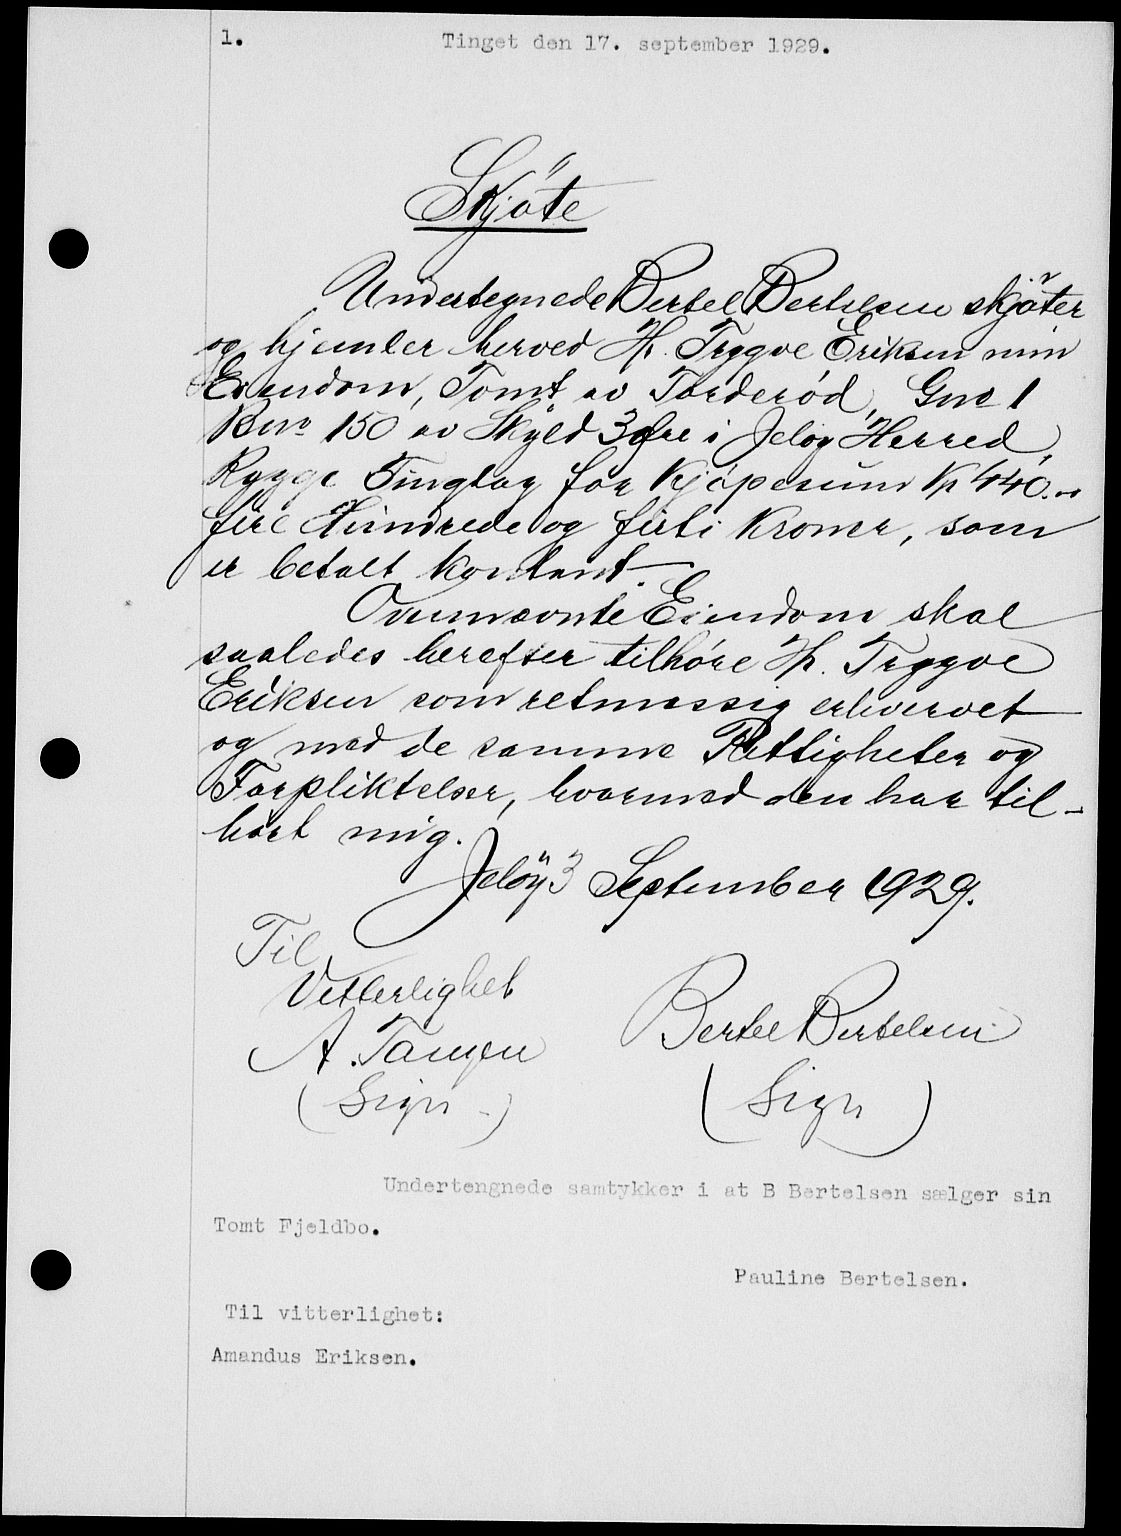 1.
Tinget den 17. september 1929.
Skjöte
Undertegnede Bertel Bertelsen skjöter
og hjemler herved Hr. Trygve Eriksen min
Eiendom, Tomt av Torderød, Gno 1
Bno 150 av Skyld 3 Øre i Jeløy Herred,
Rygge Tinglag for Kjöpesum Kr 440.-
fire Hundrede og firti Kroner, som
er betalt kontant.
Ovennævnte Eiendom skal
saaledes herefter tilhöre Hr. Trygve
Eriksen som retmæssig erhvervet
og med de samme Rettigheter og
Forpliktelser, hvormed den har til-
hört mig.
Jelöy 3 September 1929.
Til
Vitterlighet
A. Tangen
(Sign.)
Bertel Bertelsen
(Sign)
Undertengnede samtykker i at B Bertelsen sælger sin
Tomt Fjeldbo.
Pauline Bertelsen.
Til vitterlighet:
Amandus Eriksen.